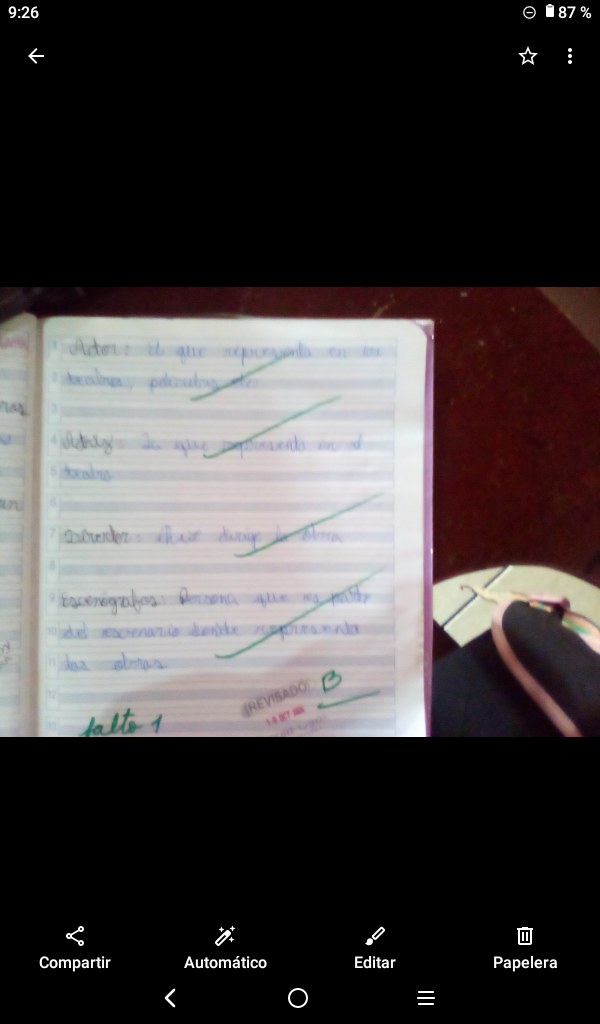 9:26
87 %
Actor: el que representa en los
teatros, películas etc
Actriz: La que representa en el
teatro
Director: que dirige la obra
escenógrafos: Persona que es
del escenario donde representa
las obras
REVISADO: B
falto 1
Compartir
Automático
Editar
Papelera